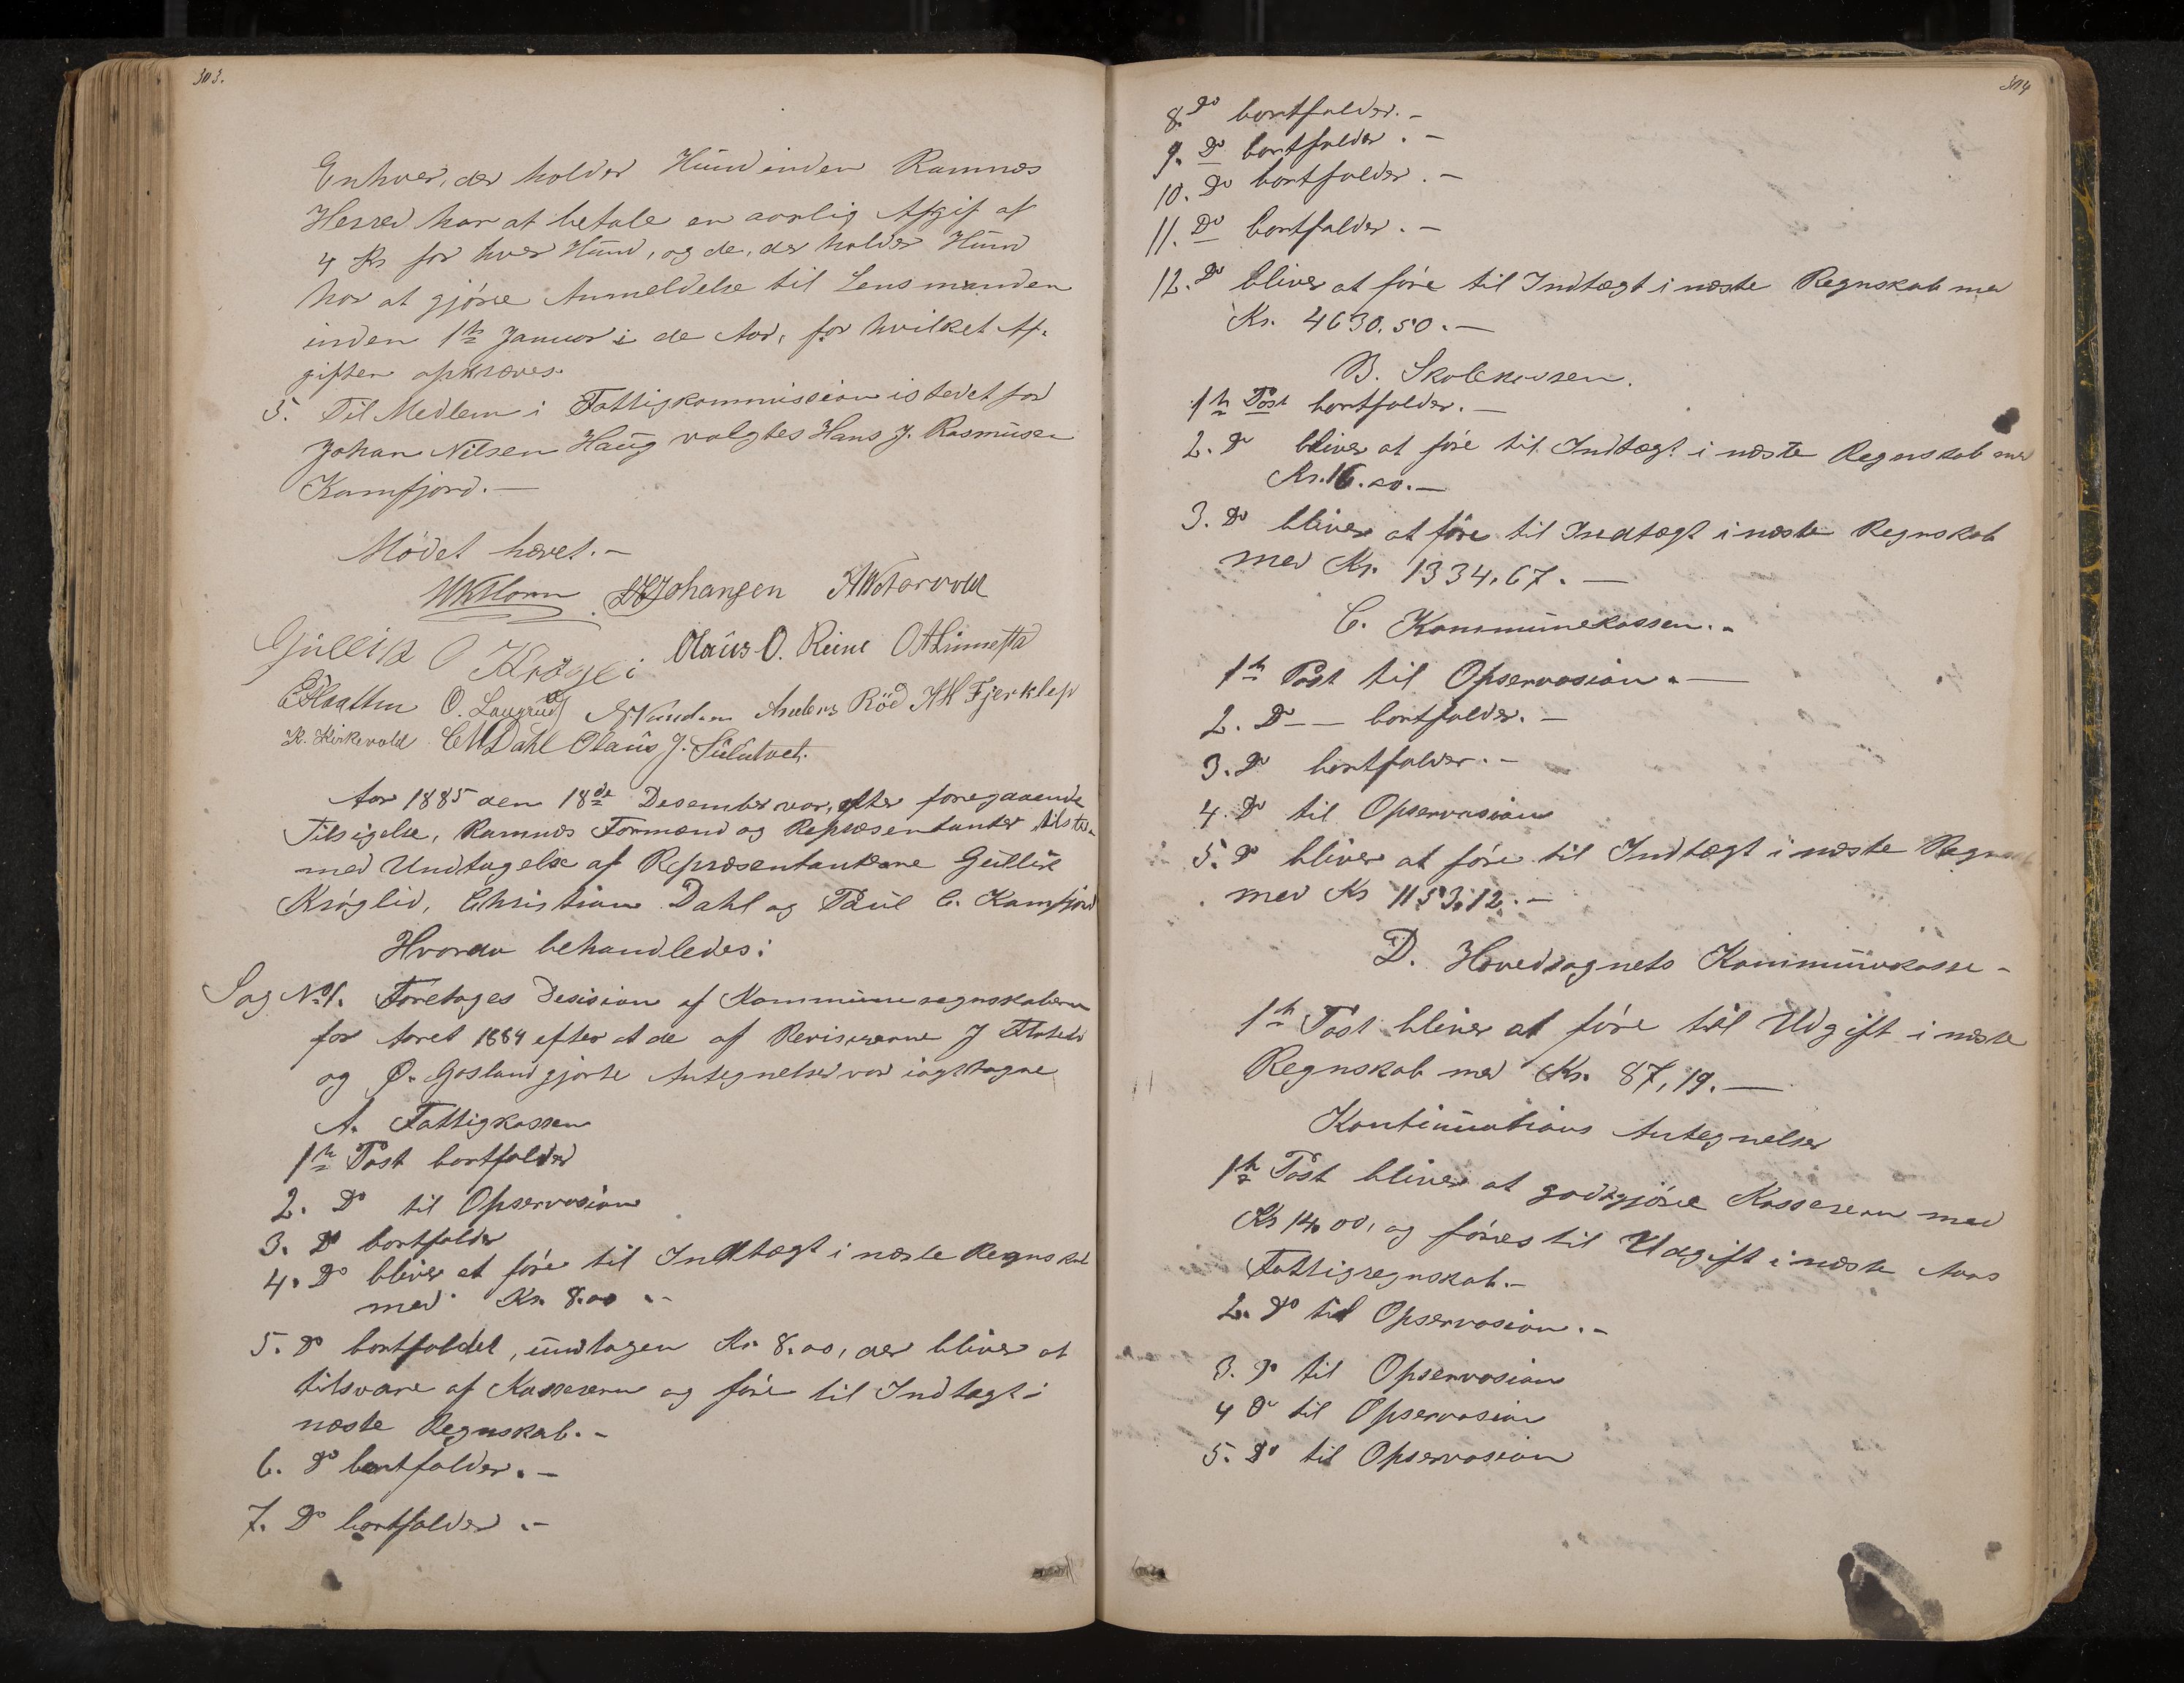 303.
Enhver, der holder Hund inden Ramnæs
Herred har at betale en aarlig Afgif af
4 Kr for hver Hund, og de, der holder Hund
har at gjøre Anmeldelse til Lensmanden
inden 1ste Januar i de Aar, for hvilket Af-
giften opkræves.
5. Til Medlem i Fattigkommission istedet for
Johan Nilsen Haug valgtes Hans J. Rasmusen
Kamfjord.—
Mødet hævet.—
Johansen
Gullik O Krøgli Olaus O. Reine O A Linnestad
O. Langrud Anders Röd A H Fjerklep
K. Kirkevold C M Dahl Olaus J.
Aar 1885 den 18de Desember var, efter foregaaende
Tilsigelse, Ramnæs Formænd og Repræsentanter tilsted
med Undtagelse af Repræsentanterne Gullik
Krøglid, Christian Dahl og Paul C. Kamfjord
Hvorda behandledes:
Sag No 1. Foretoges Desision af Kommuneregnskaberne
for Aaret 1884 efter at de af Revisorerne J Flåteb
og O. Gasland gjorte Antegnelser var iagttagne
A. Fattigkassen
1ste Post bortfalder
2. Do til Opservasion
3. Do bortfalder
4. Do bliver at føre til Indtægt i næste Regnskab
med Kr. 8.00.—
5. Do bortfaldet, undtagen Kr. 8.00, der bliver at
tilsvare af Kassereren og føre til Indtægt i
næste Regnskab.—
6. Do bortfalder.—
7. Do bortfalder.—
304
8. Do bortfalder.—
9. Do bortfalder.—
10. Do bortfalder.—
11. Do bortfalder.—
12. Do bliver at føre til Indtægt i næste Regnskab med
Kr. 4630.50.—
B. Skolekassen.
1ste Post bortfalder.—
2. Do bliver at føre til Indtægt i næste Regnskab med
Kr. 16.00.—
3. Do bliver at føre til Indtægt i næste Regnskab
med Kr. 1334,67.—
C. Kommunekassen.—
1ste Post til Opservasion.—
2. Do — bortfalder.—
3. Do bortfalder.—
4. Do til Opservasion
5. Do bliver at føre til Indtægt i næste Regnskab
med Kr 1153,12.—
D. Hovedsognets Kommunekasse—
1ste Post bliver at føre til Udgift i næste
Regnskab med Kr. 87,19.—
Kontinuations Antegnelser
1ste Post bliver at godtgjøre Kassereren med
Kr 14,00, og føres til Udgift i næste Aars
Fattigregnskab.—
2. Do til Opservasion.—
3. Do til Opservasion
4 Do til Opservasion
5. Do til Opservasion